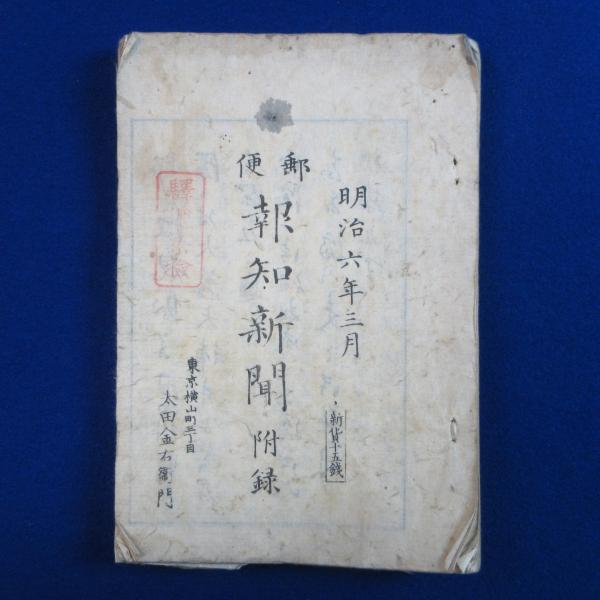 明治六年三月
新貨十五銭
郵便
報知新聞附録
東京横山町三丁目
太田金右衛門